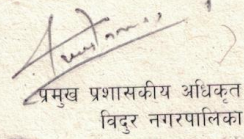 प्रमुख प्रशासकीय अधिकृत
विदुर नगरपालिका